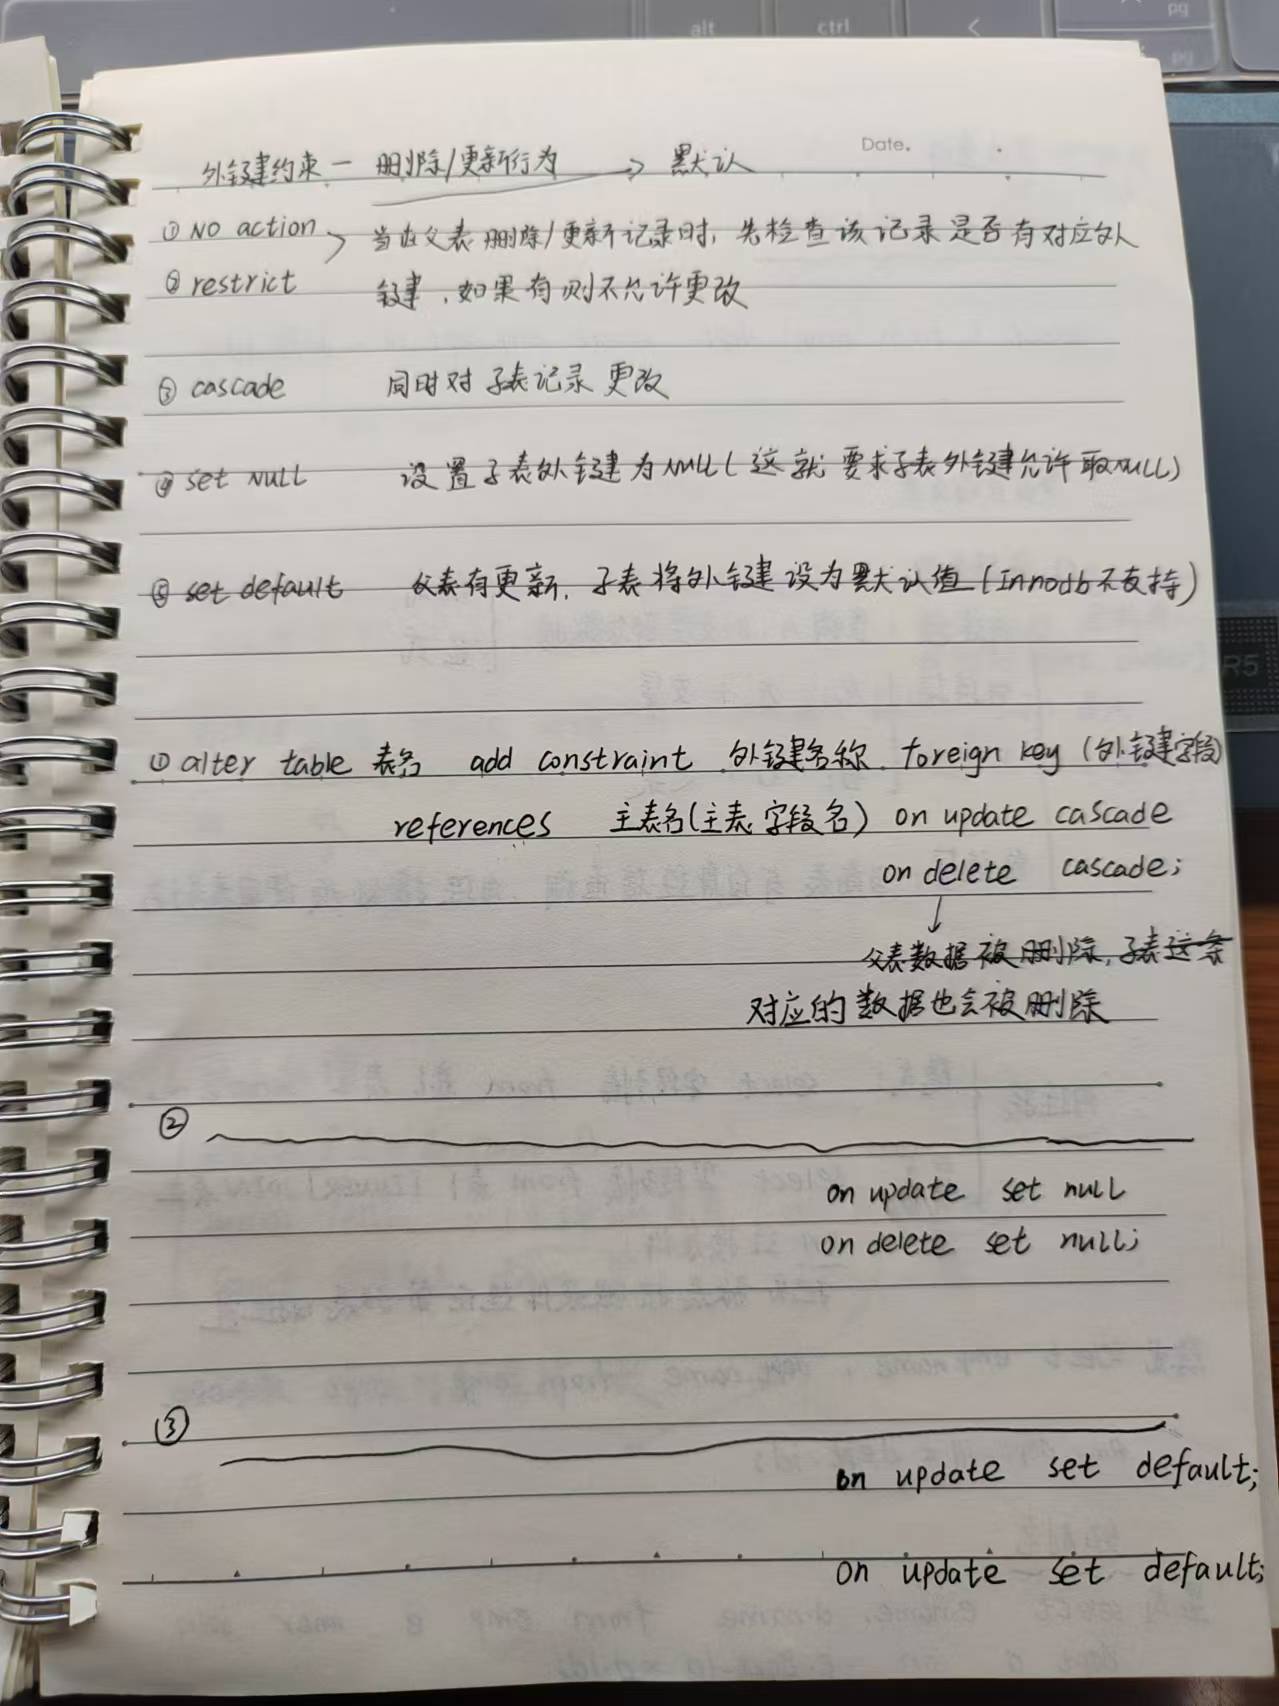 Date.
外键约束 — 删除/更新行为 → 默认
① NO action > 当在父表删除/更新记录时，先检查该记录是否有对应外
② restrict 键，如果有则不允许更改
③ cascade 同时对子表记录更改
④ set NULL 设置子表外键为NULL（这就要求子表外键允许取NULL）
⑤ set default 父表有更新，子表将外键设为默认值（Innodb不支持）
① alter table 表名 add constraint 外键名称 foreign key (外键字段)
references 主表名(主表字段名) on update cascade
on delete cascade;
↓
父表数据被删除，子表这条
对应的数据也会被删除
②
on update set null
on delete set null;
③
on update set default;
on update set default;
alt
ctrl
pg
pg
R5